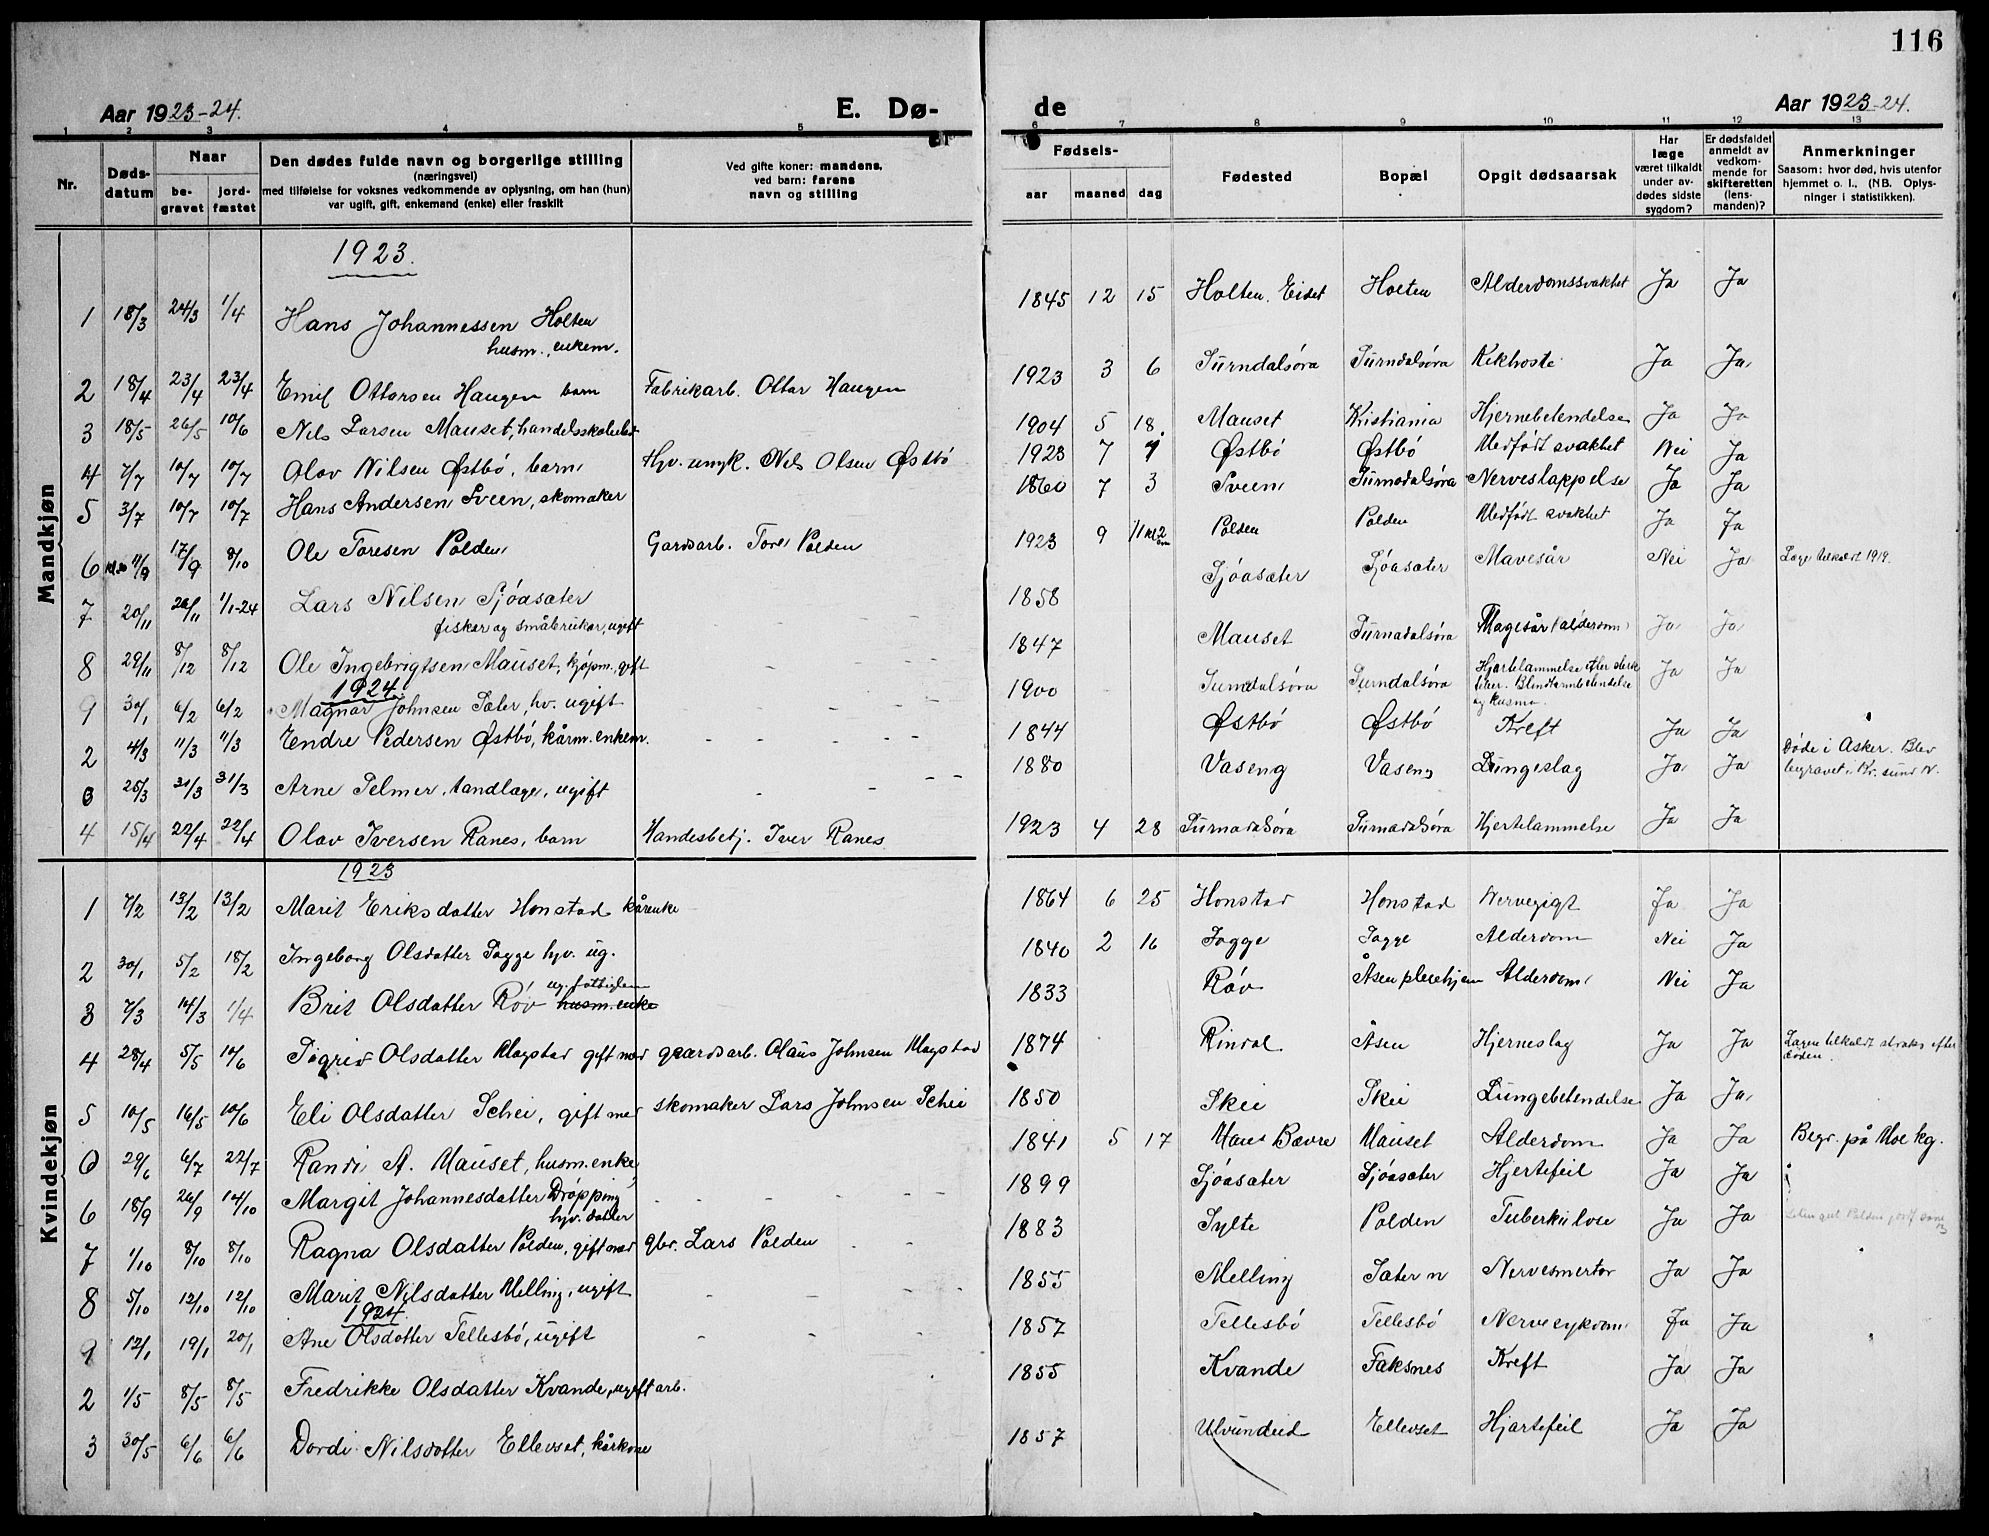 116
Aar 1923-24. E. Dø- de Aar 1923-24.
1 2 3 4 5 6 7 8 9 10 11 12 13
Nr. Døds-datum Naar be-gravet jord-fæstet Den dødes fulde navn og borgerlige stilling (næringsvei) med tilføielse for voksnes vedkommende av oplysning, om han (hun) var ugift, gift, enkemand (enke) eller fraskilt Ved gifte koner: mandens, ved barn: farens navn og stilling Fødsels- aar maaned dag Fødested Bopæl Opgit dødsaarsak Har læge været tilkaldt under av-dødes sidste sygdom? Er dødsfaldet anmeldt av vedkom-mende for skifteretten (lens-manden)? Anmerkninger Saasom: hvor død, hvis utenfor hjemmet o. l., (NB. Oplys-ninger i statistikken).
Mandkjøn
1923.
1 18/3 24/3 1/4 Hans Johannessen Holten husm., enkem. 1845 12 15 Holten, Eidet Holten Alderdomssvakhet Ja Ja
2 18/4 23/4 23/4 Emil Ottarsen Haugen barn Fabrikarb. Ottar Haugen 1923 3 6 Surndalsøra Surndalsøra Kikhoste Ja Ja
3 18/5 26/5 10/6 Nils Larsen Mauset, handelsskoleelev 1904 5 18 Mauset Kristiania Hjernebetendelse Ja Ja
4 7/7 10/7 10/7 Olav Nilsen Østbö, barn Hv. umyk. Nils Olsen Østbö 1923 7 Østbö Østbö Medfödt svakhet Nei Ja
5 3/7 10/7 10/7 Hans Andersen Sveen, skomaker 1860 7 3 Sveen Surnadalsøra Nerveslappelse Ja Ja
6 11/9 17/9 8/10 Ole Toresen Polden Gardsarb. Tore Polden 1923 9 11 Polden Polden Medfödt svakhet Ja Ja
7 20/11 26/11 1/1-24 Lars Nilsen Sjöasæter fisker og småbruker, ugift 1858 Sjöasæter Sjöasæter Mavesår Nei Ja Læge tilkaldt 1919.
8 29/11 8/12 8/12 Ole Ingebrigtsen Mauset, kjöpm., gift 1847 Mauset Surnadalsøra Magesår (alderdom) Ja Ja
1924
9 30/1 6/2 6/2 Magnar Johnsen Sæter, hv. ugift 1900 Surndalsøra Surndalsøra Hjertelammelse efter Blindtarmbetendelse og kusma. Ja Ja
2 4/3 11/3 11/3 Endre Pedersen Østbö, kårm. enkem. 1844 Østbö Østbö Kreft Ja Ja
3 25/3 31/3 31/3 Arne Selmer, tandlæge, ugift 1880 Vaseng Vaseng Lungeslag Ja Ja Døde i Asker. Blev begravet i Kr.sund N.
4 15/4 22/4 22/4 Olav Iversen Ranes, barn Handesbetj. Iver Ranes 1923 4 28 Surnadalsöra Surnadalsöra Hjertelammelse Ja Ja
Kvindekjøn
1923
1 7/2 13/2 13/2 Marit Eriksdatter Honstad kårenke 1864 6 25 Honstad Honstad Nervegigt Ja Ja
2 30/1 5/2 18/2 Ingeborg Olsdatter Sogge hjv. ug. 1840 2 16 Sogge Sogge Alderdom Nei Ja
3 7/3 14/3 1/4 Brit Olsdatter Röv husm. enke ug. fattiglem 1833 Röv Åsen pleiehjem Alderdom Nei Ja
4 28/4 5/5 14/6 Sigrid Olsdatter Klagstad gift med gaardsarb. Olaus Johnsen Klagstad 1874 Rindal Åsen Hjerneslag Ja Ja Lægen tilkaldt straks efter döden.
5 10/5 16/5 10/6 Eli Olsdatter Schei, gift med skomaker Lars Johnsen Schei 1850 Skei Skei Lungebetendelse Ja Ja
6 29/6 6/7 22/7 Randi A. Mauset, husm. enke 1841 5 17 Hans Bævre Mauset Alderdom Ja Ja Begr. på Moe kg.
6 18/9 26/9 14/10 Margit Johannesdatter Dröpping hjv. datter 1899 Sjöasæter Sjöasæter Hjertefeil Ja Ja
7 1/10 8/10 8/10 Ragna Olsdatter Polden, gift med gbr. Lars Polden 1883 Sylte Polden Tuberkulose Ja Ja
8 5/10 12/10 12/10 Marit Nilsdatter Melling, ugift 1855 Melling Sæter n Nervesmerter Ja Ja
1924.
9 12/1 19/1 20/1 Ane Olsdatter Tellesbö, ugift 1857 Tellesbö Tellesbö Nervesykdom Ja Ja
2 1/5 8/5 8/5 Fredrikke Olsdatter Kvande, ugift arb. 1855 Kvande Faksnes Kreft Ja Ja
3 30/5 6/6 6/6 Dordi Nilsdatter Ellevset, kårkone 1857 Ulvundeid Ellevset Hjartefeil Ja Ja